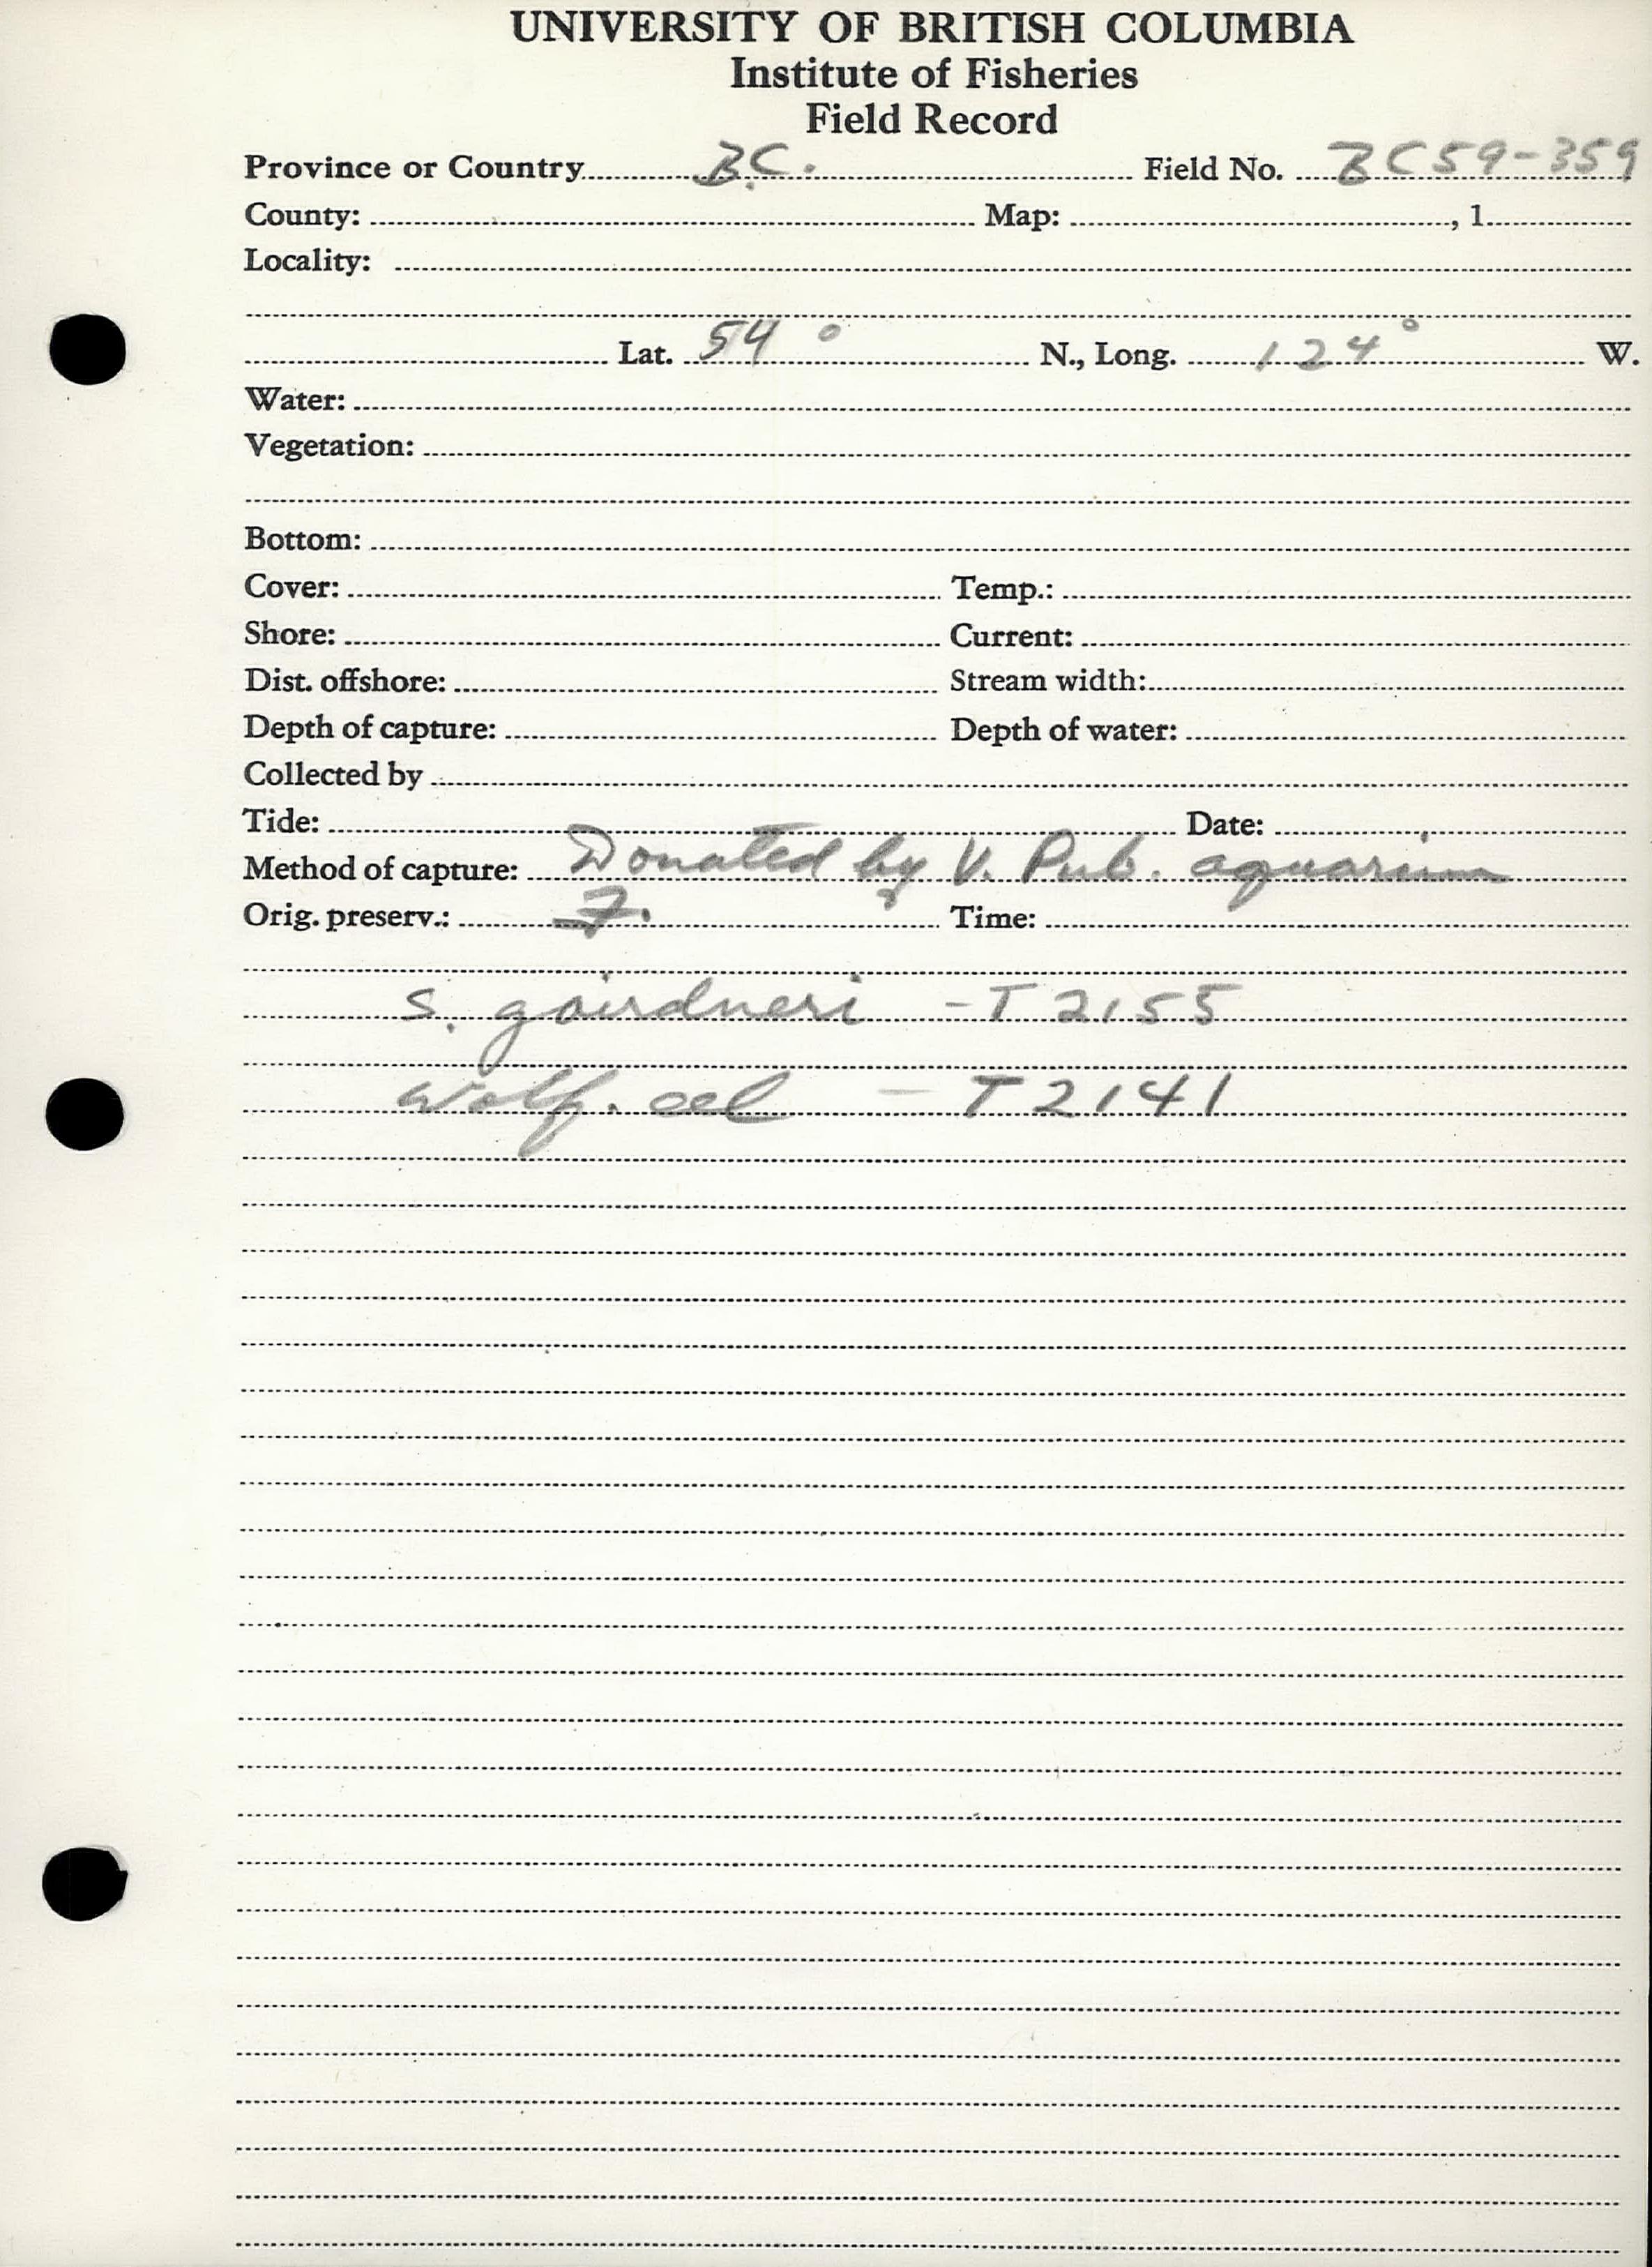 UNIVERSITY OF BRITISH COLUMBIA
Institute of Fisheries
Field Record
Province or Country B.C. Field No. BC59-359
County: Map: , 1
Locality:
Lat. 54° N., Long. 124° W.
Water:
Vegetation:
Bottom:
Cover: Temp.:
Shore: Current:
Dist. offshore: Stream width:
Depth of capture: Depth of water:
Collected by
Tide: Date:
Method of capture: Donated by V. Pub. aquarium
Orig. preserv.: F. Time:
S. gairdneri - T 2155
Wolf. eel - T 2141